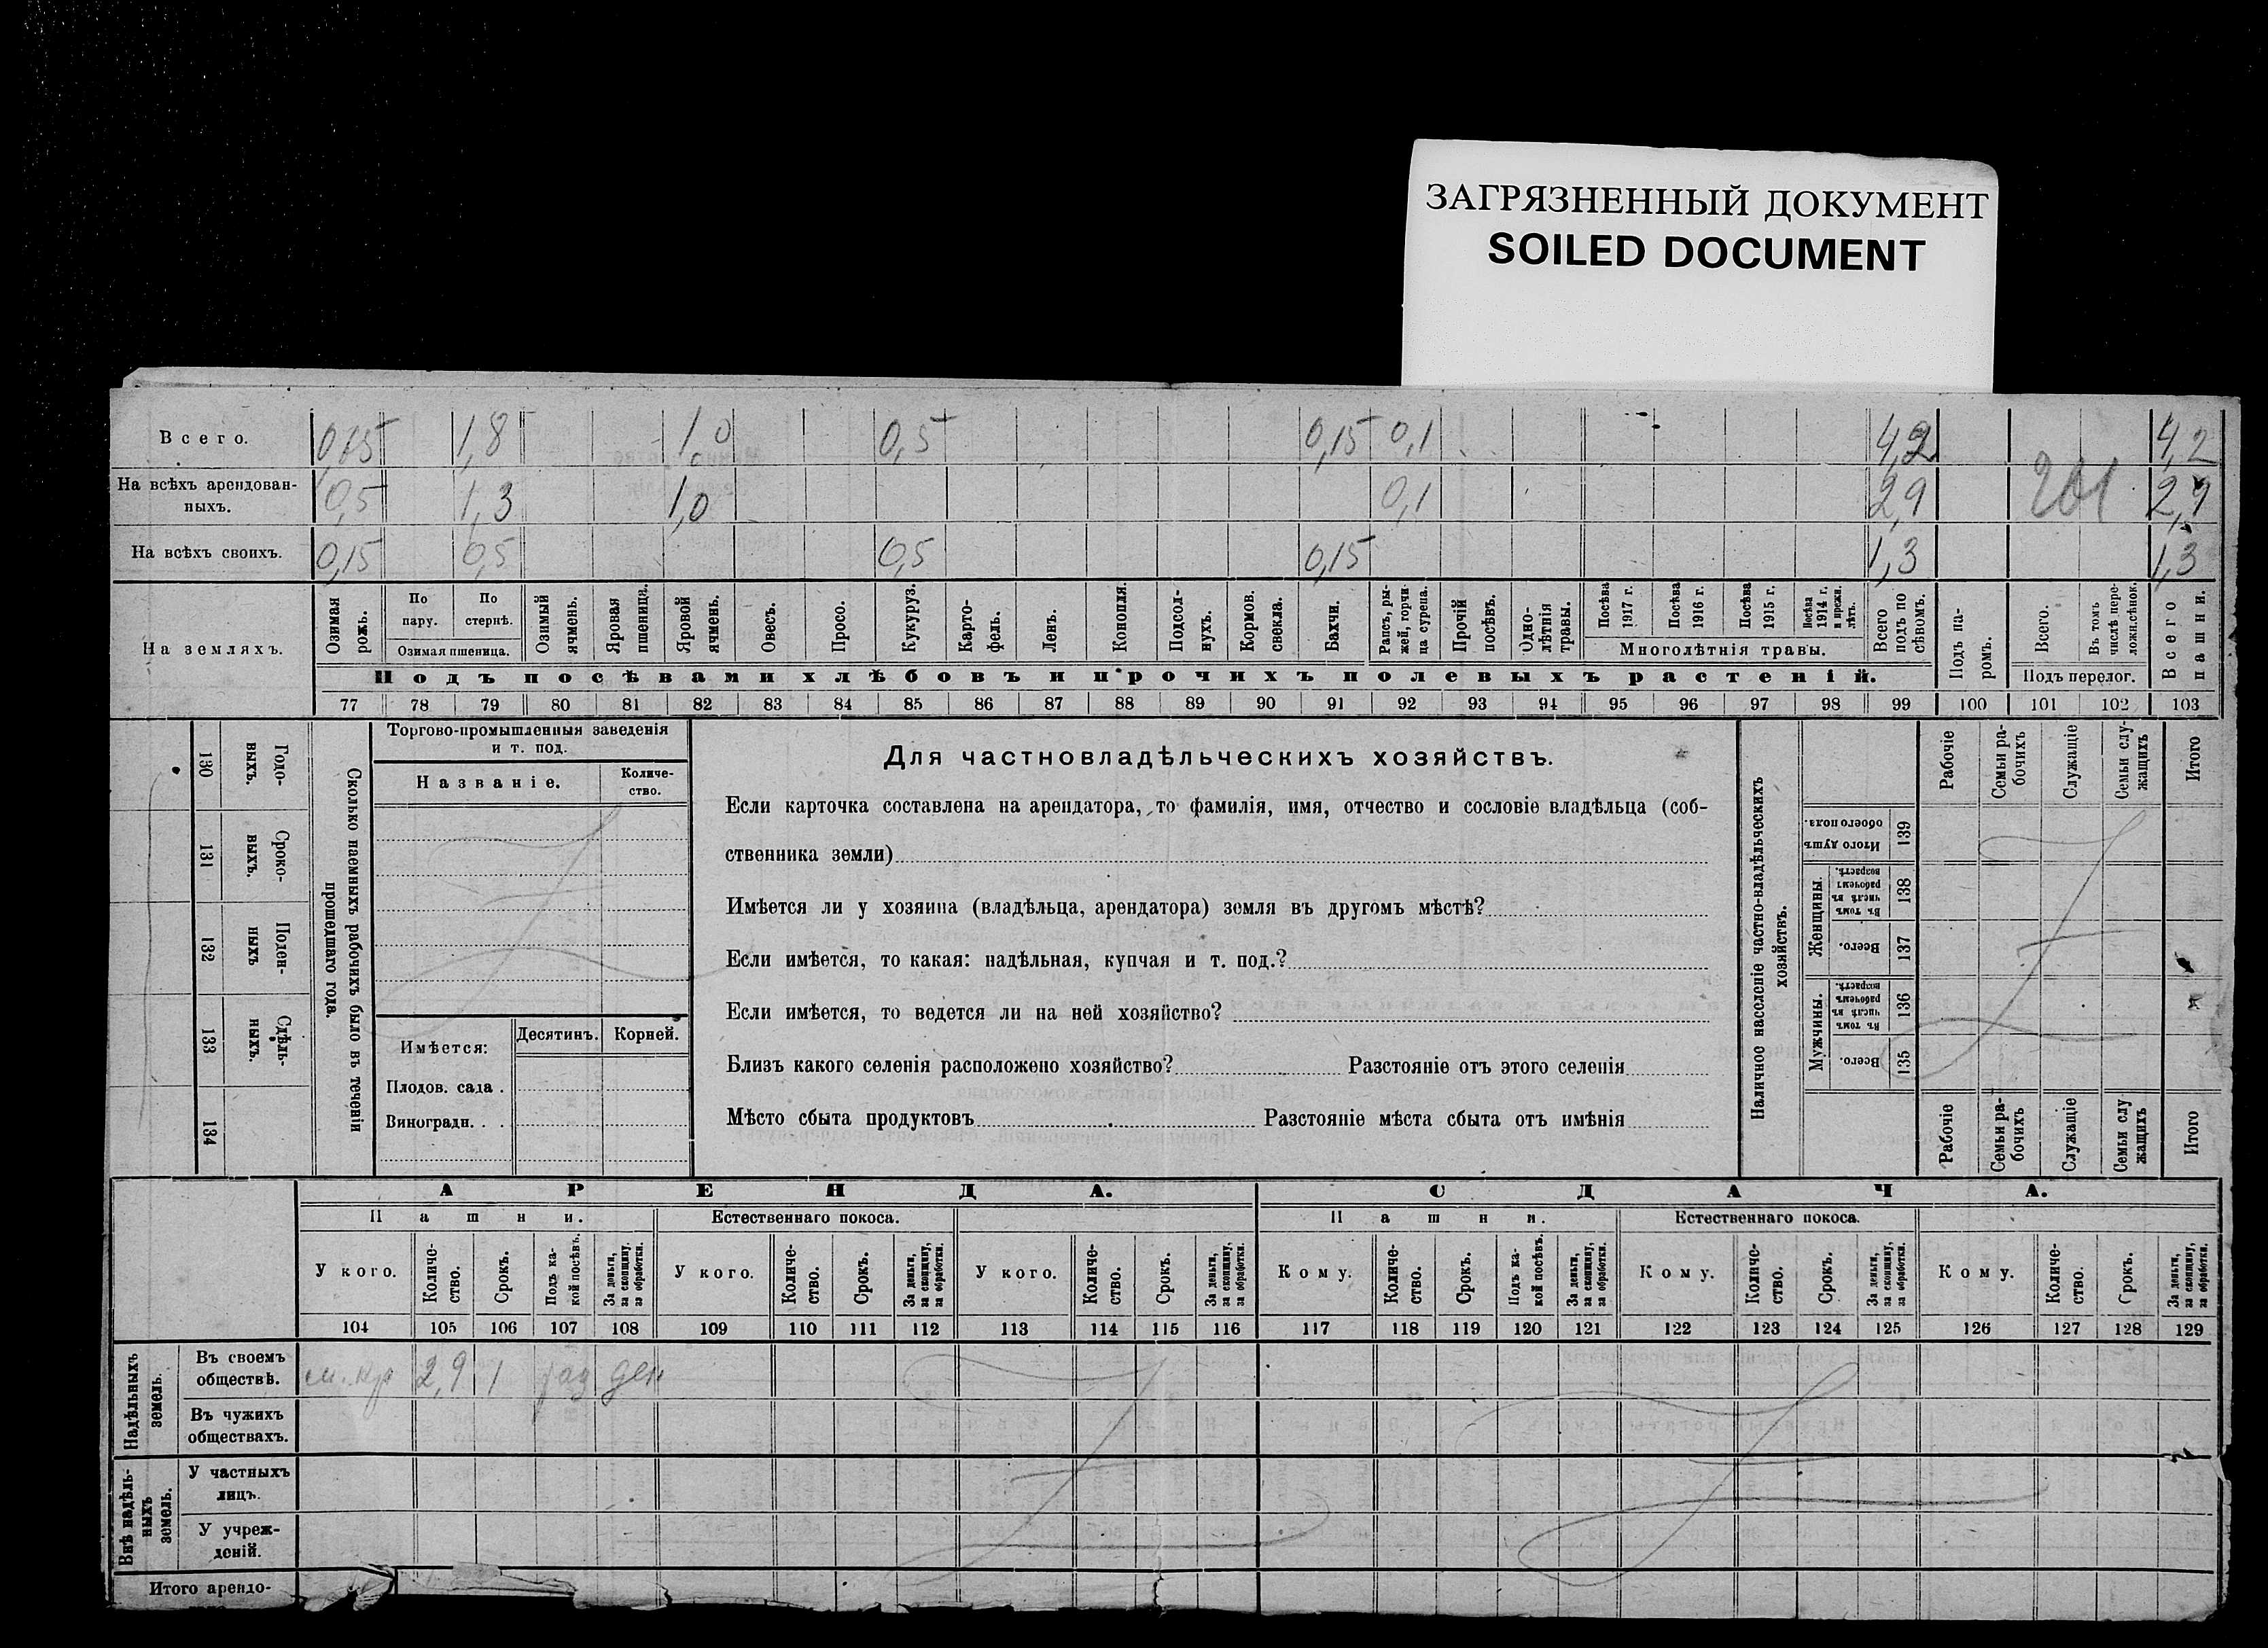 ЗАГРЯЗНЕННЫЙ ДОКУМЕНТ
SOILED DOCUMENT
Всего. 0,65 1,8 1,0 0,5 0,15 0,1 4,2 4,2
На всѣхъ арендован-
ныхъ. 0,5 1,3 1,0 0,1 2,9 201 2,9
На всѣхъ своихъ. 0,15 0,5 0,5 0,15 1,3 1,3
На земляхъ.
Озимая рожь.
По пару.
По стернѣ.
Озимая пшеница.
Озимый ячмень.
Яровая пшеница.
Яровой ячмень.
Овесъ.
Просо.
Кукуруз.
Карто-
фель.
Ленъ.
Конопля.
Подсол-
нухъ.
Кормов.
свекла.
Бахчи.
Рапсъ, ры-
жей, горчи
ца сурепа.
Прочій
посѣвъ.
Одно-
лѣтнія
травы.
Посѣва
1917 г.
Посѣва
1916 г.
Посѣва
1915 г.
Посѣва
1914 г.
и прежн.
лѣтъ.
Многолѣтнія травы.
Всего
подъ по
сѣвомъ.
Подъ па-
ромъ.
Всего.
Въ томъ
числѣ пере-
ложн.сѣнок.
Подъ перелог.
Всего
пашни.
Подъ посѣвами хлѣбовъ и прочихъ полевыхъ растеній.
77 78 79 80 81 82 83 84 85 86 87 88 89 90 91 92 93 94 95 96 97 98 99 100 101 102 103
130 Годо-
выхъ.
131 Сроко-
выхъ.
132 Поден-
ныхъ
133 Сдѣль-
ныхъ.
134
Сколько наемныхъ рабочихъ было въ теченіи
прошедшаго года.
Торгово-промышленныя заведенія
и т. под.
Названіе.
Количе-
ство.
Имѣется:
Десятинъ. Корней.
Плодов. сада .
Виноградн. . .
Для частновладѣльческихъ хозяйствъ.
Если карточка составлена на арендатора, то фамилія, имя, отчество и сословіе владѣльца (соб-
ственника земли)
Имѣется ли у хозяина (владѣльца, арендатора) земля въ другомъ мѣстѣ?
Если имѣется, то какая: надѣльная, купчая и т. под.?
Если имѣется, то ведется ли на ней хозяйство?
Близъ какого селенія расположено хозяйство? Разстояніе отъ этого селенія
Мѣсто сбыта продуктовъ Разстояніе мѣста сбыта отъ имѣнія
Наличное населеніе частно-владѣльческихъ
хозяйствъ.
Рабочіе
Семьи ра-
бочихъ
Служащіе
Семьи слу-
жащихъ
Итого
Итого душъ
обоего пола.
139
Женщины.
Въ томъ
числѣ въ
рабочемъ
возрастѣ.
138
Всего.
137
Мужчины.
Въ томъ
числѣ въ
рабочемъ
возрастѣ.
136
Всего.
135
Рабочіе
Семьи ра-
бочихъ
Служащіе
Семьи слу
жащихъ
Итого
АРЕНДА. СДАЧА.
Пашни. Естественнаго покоса. Пашни. Естественнаго покоса.
У кого.
Количе-
ство.
Срокъ.
Подъ ка-
кой посѣвъ.
За деньги,
за скопщину,
за обработки.
У кого.
Количе-
ство.
Срокъ.
За деньги,
за скопщину,
за обработки.
У кого.
Количе-
ство.
Срокъ.
За деньги,
за скопщину,
за обработки.
Кому.
Количе-
ство.
Срокъ.
Подъ ка-
кой посѣвъ.
За деньги,
за скопщину,
за обработки.
Кому.
Количе-
ство.
Срокъ.
За деньги,
за скопщину,
за обработки.
Кому.
Количе-
ство.
Срокъ.
За деньги,
за скопщину,
за обработки.
104 105 106 107 108 109 110 111 112 113 114 115 116 117 118 119 120 121 122 123 124 125 126 127 128 129
Надѣльныхъ
земель.
Въ своемъ
обществѣ. 2,9 1 ден
Въ чужихъ
обществахъ.
Внѣ надѣль-
ныхъ
земель.
У частныхъ
лицъ.
У учреж-
деній.
Итого арендо-